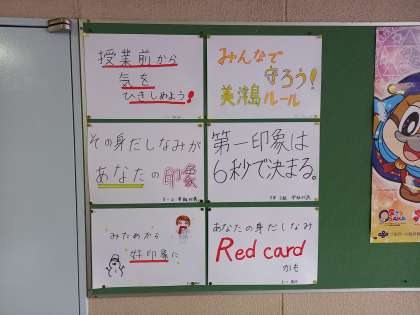 授業前から
気を
ひきしめよう!
みんなで
守ろう!
美津島ルール
その身だしなみが
あなたの印象
第一印象は
6秒で決まる。
みためから
好印象に
あなたの身だしなみ
Red card
かも